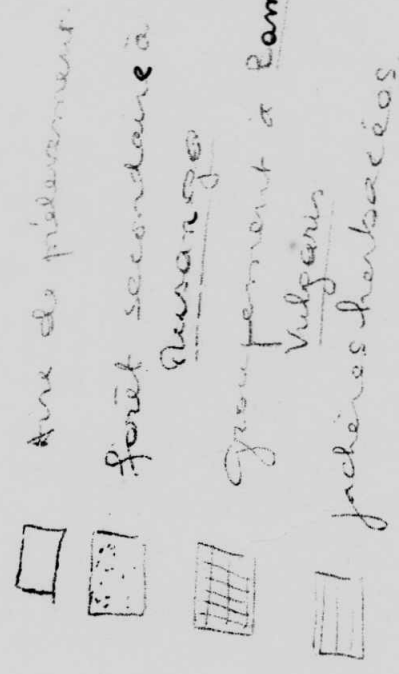 Aire de prélèvement
forêt secondaire à
Musanga
groupement à Bam
Vulgaris
jachères herbacées